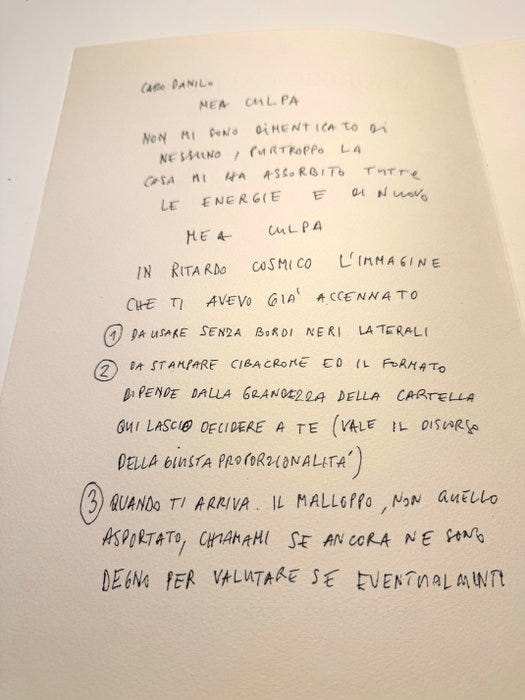 CARO DANILO
MEA CULPA
NON MI SONO DIMENTICATO DI
NESSUNO, PURTROPPO LA
COSA MI HA ASSORBITO TUTTE
LE ENERGIE E DI NUOVO
MEA CULPA
IN RITARDO COSMICO L'IMMAGINE
CHE TI AVEVO GIA' ACCENNATO
① DA USARE SENZA BORDI NERI LATERALI
② DA STAMPARE CIBACROME ED IL FORMATO
DIPENDE DALLA GRANDEZZA DELLA CARTELLA
QUI LASCIO DECIDERE A TE (VALE IL DISCORSO
DELLA GIUSTA PROPORZIONALITA')
③ QUANDO TI ARRIVA. IL MALLOPPO, NON QUELLO
ASPORTATO, CHIAMAMI SE ANCORA NE SONO
DEGNO PER VALUTARE SE EVENTUALMENTE